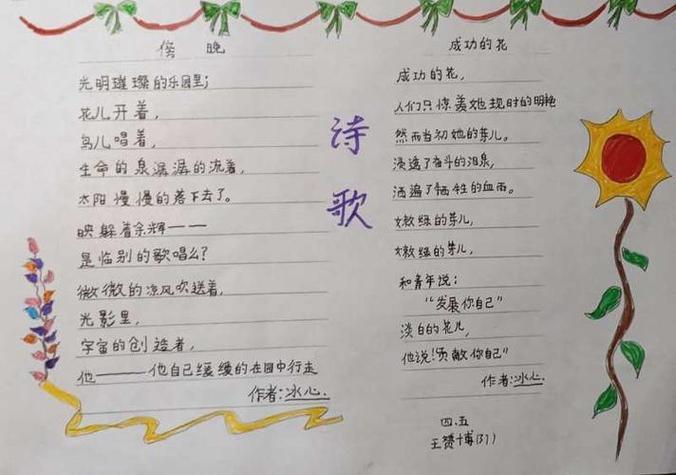 傍晚
光明璀璨的乐园里；
花儿开着，
鸟儿唱着，
生命的泉潺潺的流着，
太阳慢慢的落下去了。
映躲着余辉——
是临别的歌唱么？
微微的凉风吹送着，
光影里，
宇宙的创造者，
他——他自己缓缓的在园中行走
作者：冰心.
诗
歌
成功的花
成功的花，
人们只惊羡她现时的明艳
然而当初她的芽儿。
浸透了奋斗的泪泉，
洒遍了牺牲的血雨。
嫩绿的芽儿，
嫩绿的芽儿，
和青年说：
“发展你自己”
淡白的花儿，
他说！贡献你自己”
作者：冰心.
四.五
王赟博(31)